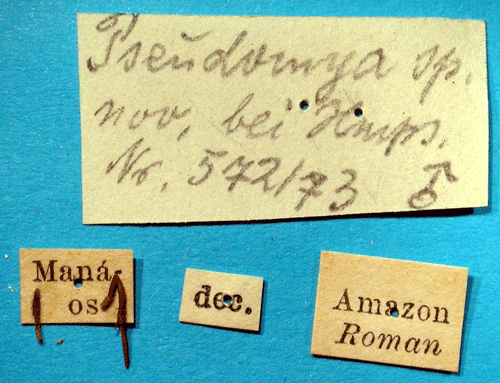 Pseŭdomya sp.
nov, bei Hmps.
Nr. 572/73 ♂
Maná-
os
dec.
Amazon
Roman